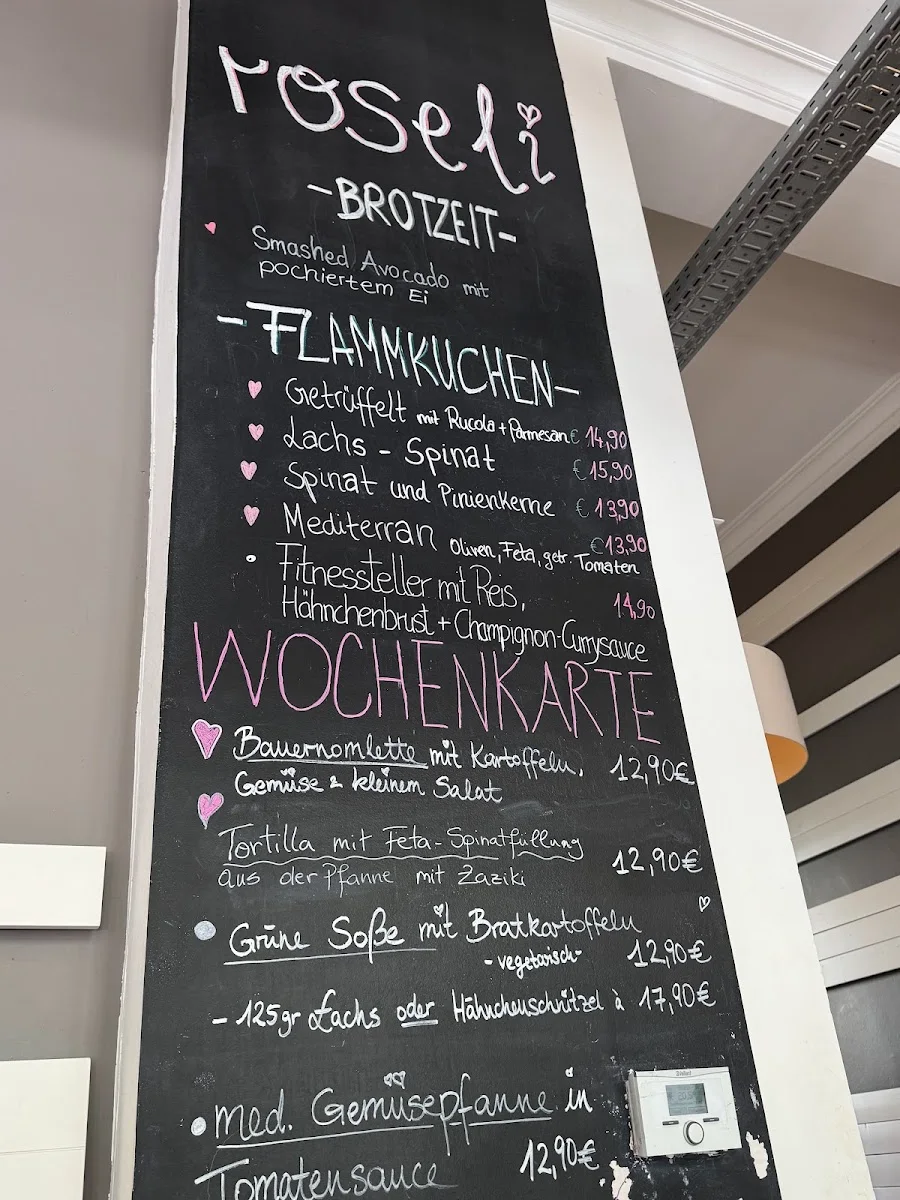 roseli
-BROTZEIT-
Smashed Avocado mit
pochiertem Ei
-FLAMMKUCHEN-
Getrüffelt mit Rucola + Parmesan € 14,90
Lachs - Spinat € 15,90
Spinat und Pinienkerne € 13,90
Mediterran Oliven, Feta, getr. Tomaten € 13,90
Fitnessteller mit Reis,
Hähnchenbrust + Champignon-Currysauce 14,90
WOCHENKARTE
Bauernomlette mit Kartoffeln, 12,90€
Gemüse & kleinem Salat
Tortilla mit Feta-Spinatfüllung
aus der Pfanne mit Zaziki 12,90€
Grüne Soße mit Bratkartoffeln
-vegetarisch- 12,90€
- 125gr Lachs oder Hähnchenschnitzel à 17,90€
med. Gemüsepfanne in
Tomatensauce 12,90€